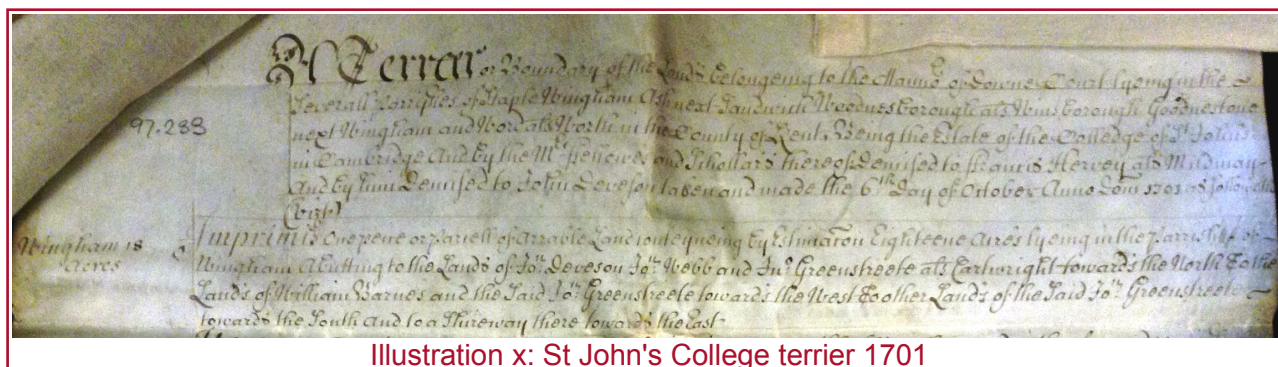 A Terrar or Boundary of the Lands Belongeing to the Mannor of Downe Court lyeing in the
Severall Parrishes of Staple Wingham Ash next Sandwich Woodnesborough als Winsborough Goodnestone
97.283
next Wingham and Word als Worth in the County of Kent Being the Estate of the Colledge of St Johns
in Cambridge And by the Mr. Fellowes and Schollars thereof Demised to Francis Hervey als Mildmay
And by him Demised to John Deveson taken and made the 6th Day of October Anno Dom 1701 as followeth
(vizt)
Wingham 18
Acres
Imprimis One peice or Parcell of Arrable Land conteyneing by Estimacon Eighteene Acres lyeing in the Parrish of
Wingham Abutting to the Lands of Jon. Deveson Jon. Webb and Jno. Greenstreete als Cartwright towards the North to the
Lands of William Barnes and the Said Jon. Greenstreete towards the West to other Lands of the Said Jon. Greenstreete
towards the South and to a Shireway there towards the East
Illustration x: St John's College terrier 1701